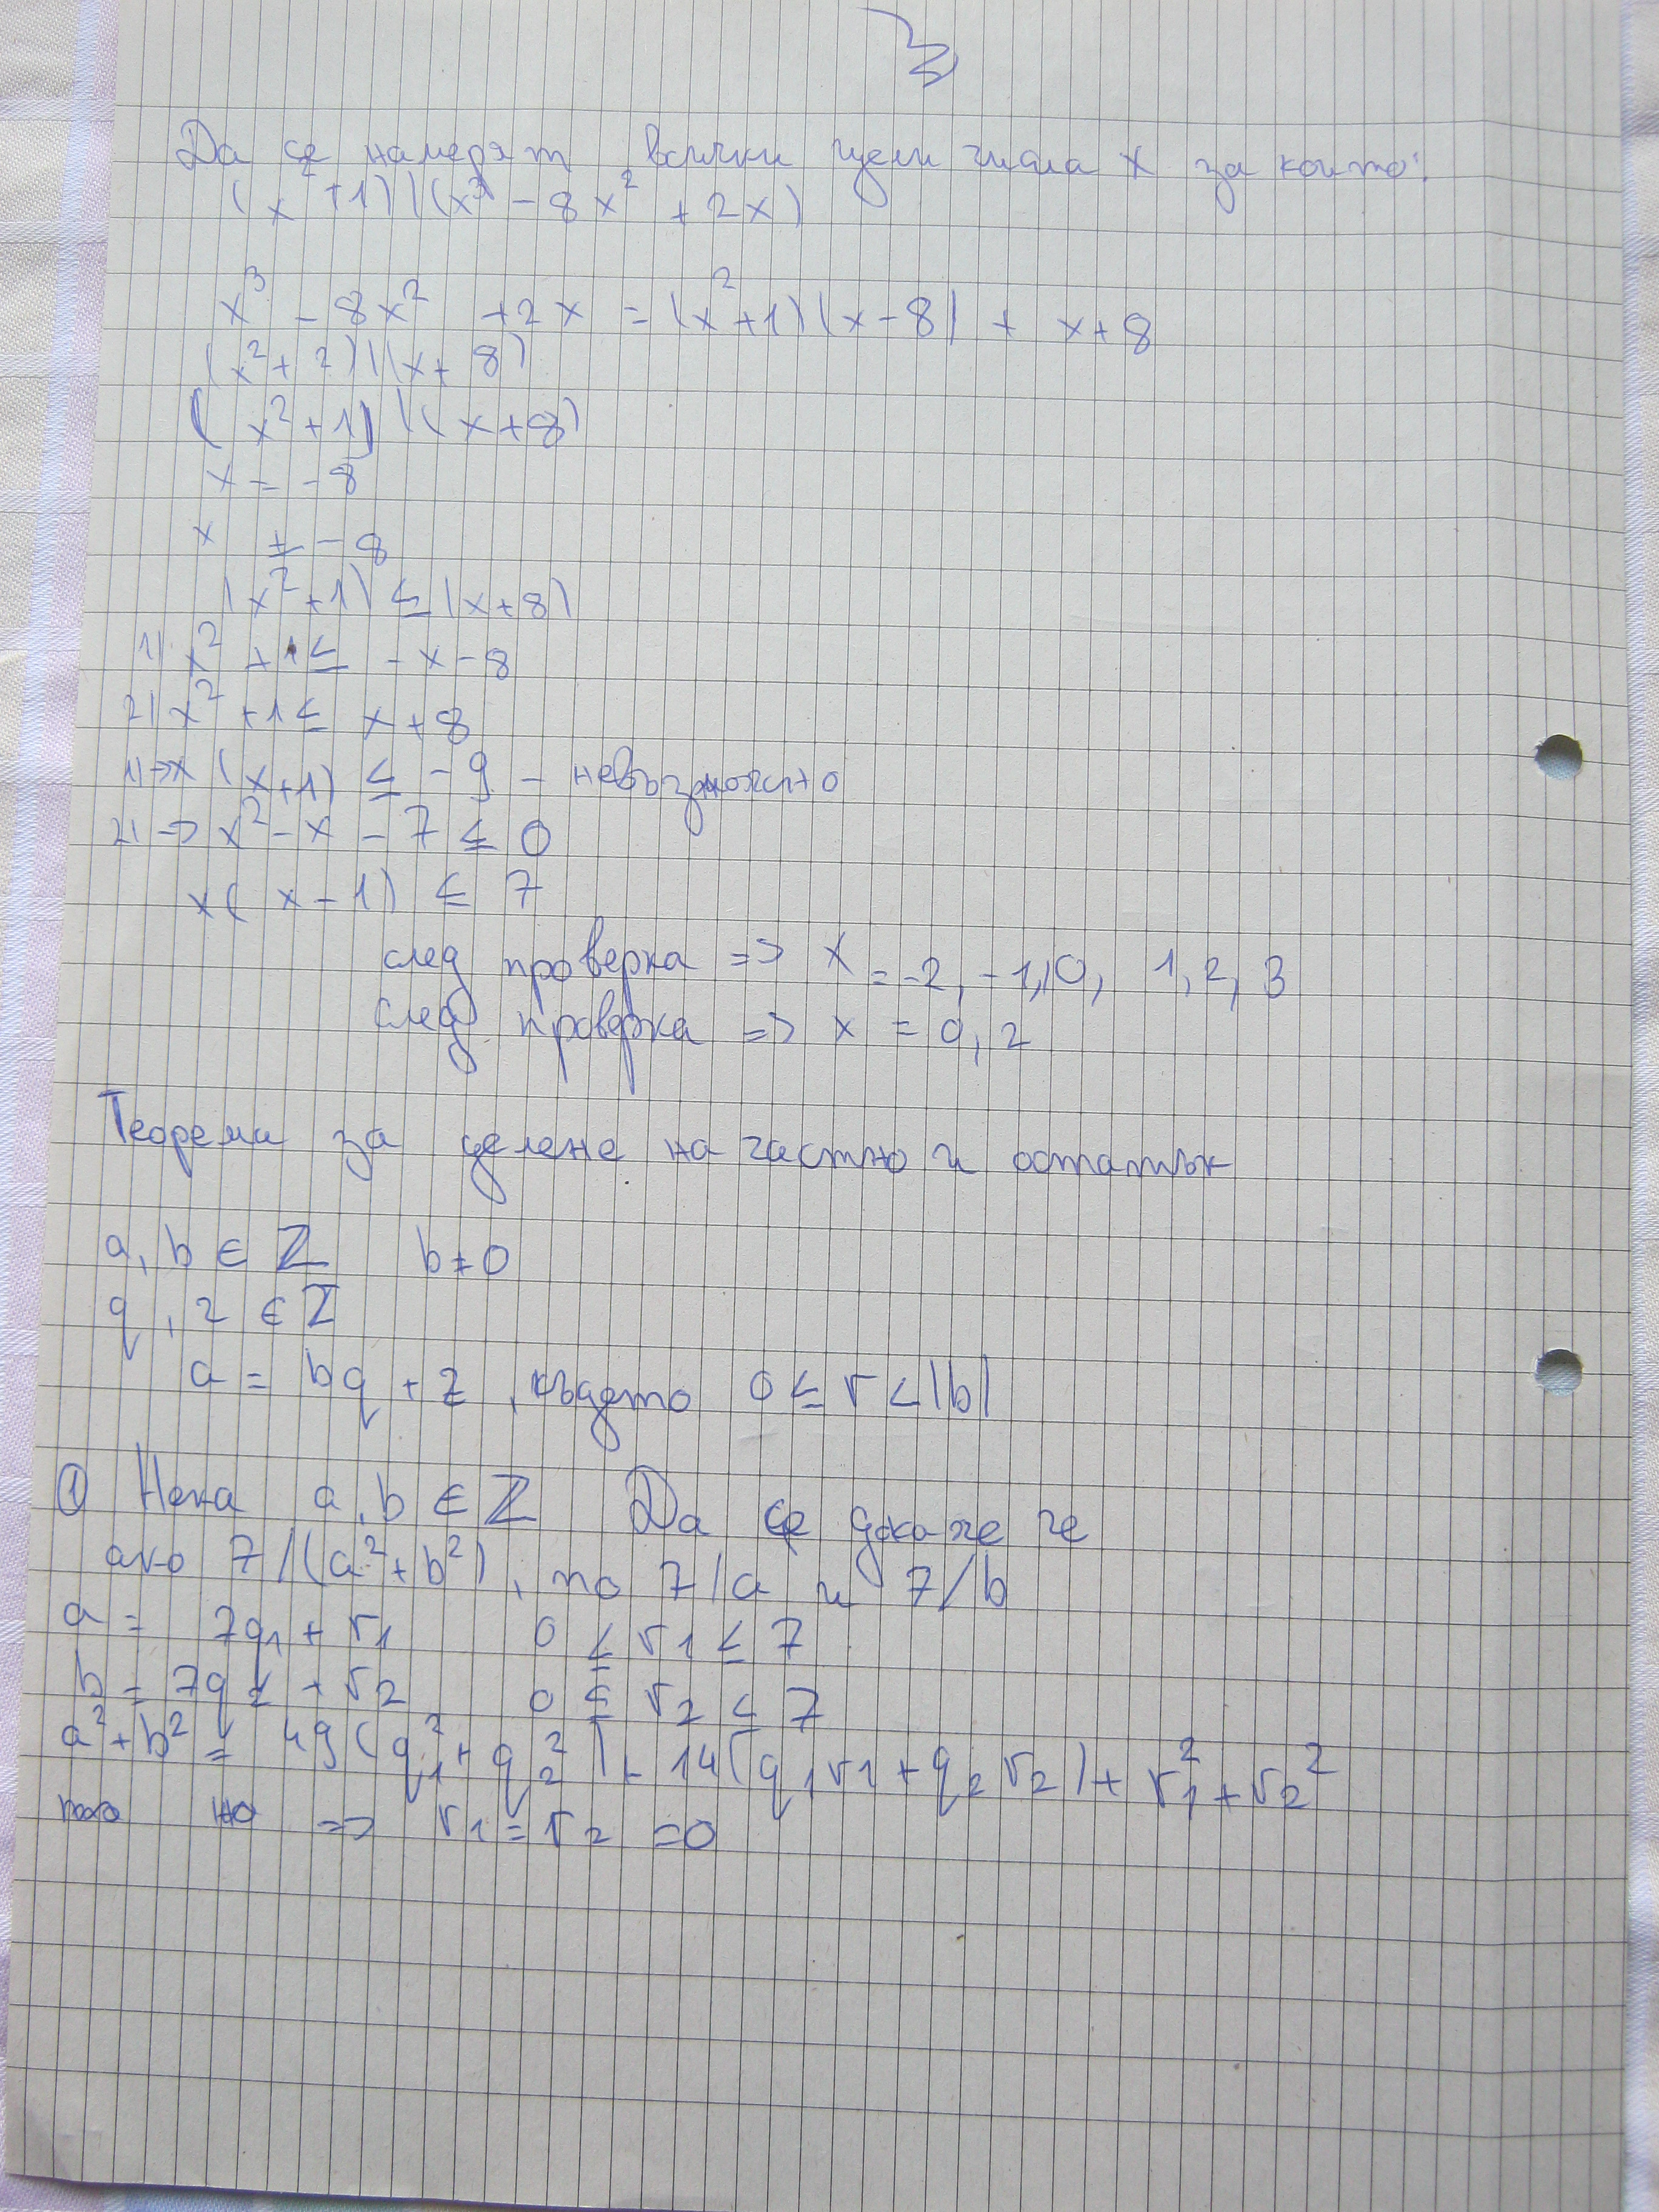 Да се намерят всички цели числа x за които:
(x² +1)|(x³ - 8x² + 2x)
x³ - 8x² +2x = (x²+1)(x-8) + x+8
(x²+2)|(x+8)
(x²+1)|(x+8)
x = -8
x ≠ -8
|x²+1| ≤ |x+8|
1) x² +1 ≤ -x-8
2) x² +1 ≤ x+8
1) → x(x+1) ≤ -9 - невъзможно
2) → x² - x - 7 ≤ 0
x(x-1) ≤ 7
след проверка => x = -2, -1, 0, 1, 2, 3
след проверка => x = 0, 2
Теорема за делене на частно и остатък
a, b ∈ ℤ b ≠ 0
q, r ∈ ℤ
a = bq + r, където 0 ≤ r < |b|
① Нека a, b ∈ ℤ Да се докаже че
ако 7/(a²+b²), то 7/a и 7/b
a = 7q₁ + r₁ 0 ≤ r₁ ≤ 7
b = 7q₂ + r₂ 0 ≤ r₂ ≤ 7
a² + b² = 49(q₁² + q₂²) - 14(q₁r₁ + q₂r₂) + r₁² + r₂²
=> r₁ = r₂ = 0